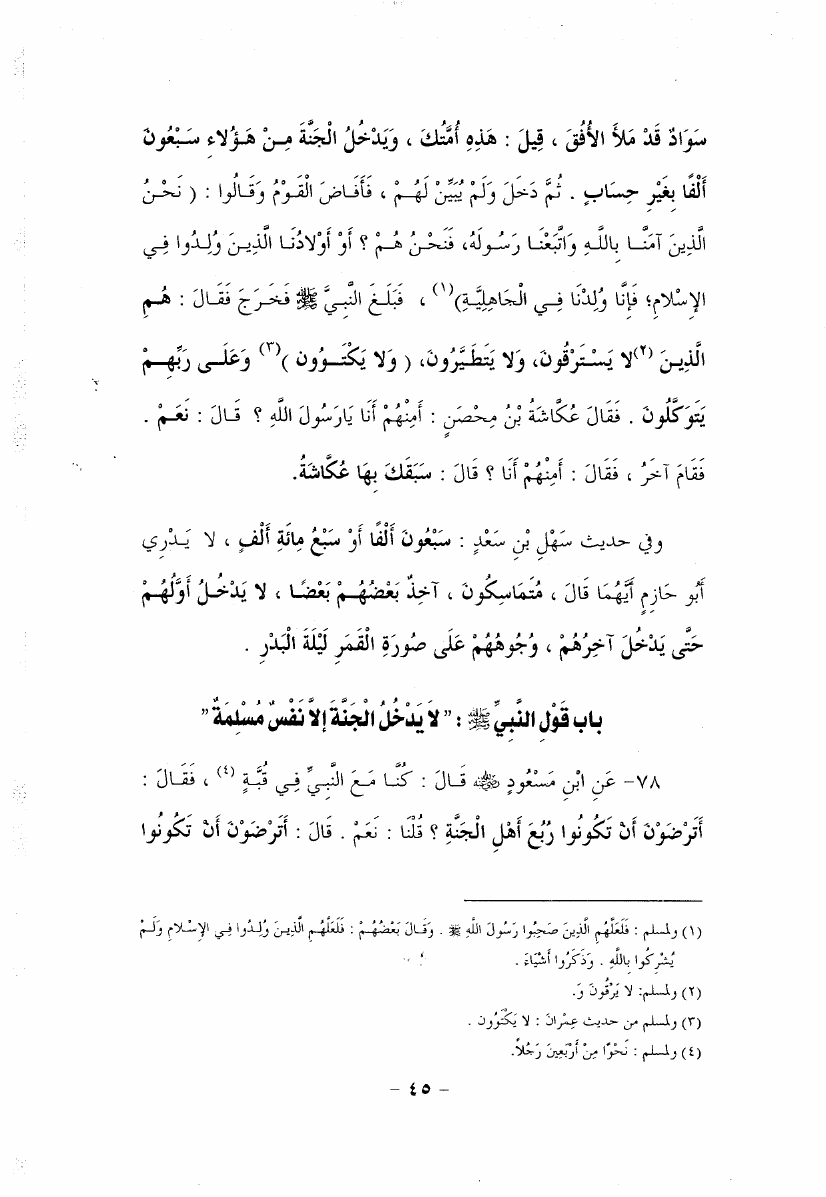 سَوَادٌ قَدْ مَلأَ الأُفُقَ ، قِيلَ : هَذِهِ أُمَّتُكَ ، وَيَدْخُلُ الْجَنَّةَ مِنْ هَؤُلاءِ سَبْعُونَ
أَلْفًا بِغَيْرِ حِسَابٍ . ثُمَّ دَخَلَ وَلَمْ يُبَيِّنْ لَهُمْ ، فَأَفَاضَ الْقَوْمُ وَقَالُوا : ( نَحْنُ
الَّذِينَ آمَنَّا بِاللَّهِ وَاتَّبَعْنَا رَسُولَهُ، فَنَحْنُ هُمْ ؟ أَوْ أَوْلادُنَا الَّذِينَ وُلِدُوا فِي
الإِسْلامِ؛ فَإِنَّا وُلِدْنَا فِي الْجَاهِلِيَّةِ)(١) ، فَبَلَغَ النَّبِيَّ ﷺ فَخَرَجَ فَقَالَ : هُمِ
الَّذِينَ (٢)لا يَسْتَرْقُونَ، وَلا يَتَطَيَّرُونَ، ( وَلا يَكْتَوُونَ )(٣) وَعَلَى رَبِّهِمْ
يَتَوَكَّلُونَ . فَقَالَ عُكَّاشَةُ بْنُ مِحْصَنٍ : أَمِنْهُمْ أَنَا يَارَسُولَ اللَّهِ ؟ قَالَ : نَعَمْ .
فَقَامَ آخَرُ ، فَقَالَ : أَمِنْهُمْ أَنَا ؟ قَالَ : سَبَقَكَ بِهَا عُكَّاشَةُ.
وفي حديث سَهْلِ بْنِ سَعْدٍ : سَبْعُونَ أَلْفًا أَوْ سَبْعُ مِائَةِ أَلْفٍ ، لا يَدْرِي
أَبُو حَازِمٍ أَيَّهُمَا قَالَ ، مُتَمَاسِكُونَ ، آخِذٌ بَعْضُهُمْ بَعْضًا ، لا يَدْخُلُ أَوَّلُهُمْ
حَتَّى يَدْخُلَ آخِرُهُمْ ، وُجُوهُهُمْ عَلَى صُورَةِ الْقَمَرِ لَيْلَةَ الْبَدْرِ .
باب قَوْلِ النَّبِيِّ ﷺ : ” لاَ يَدْخُلُ الْجَنَّةَ إِلاَّ نَفْسٌ مُسْلِمَةٌ ”
٧٨- عَنِ ابْنِ مَسْعُودٍ ﷺ قَالَ : كُنَّا مَعَ النَّبِيِّ فِي قُبَّةٍ (٤) ، فَقَالَ :
أَتَرْضَوْنَ أَنْ تَكُونُوا رُبُعَ أَهْلِ الْجَنَّةِ ؟ قُلْنَا : نَعَمْ . قَالَ : أَتَرْضَوْنَ أَنْ تَكُونُوا
(١) ولمسلم : فَلَعَلَّهُمِ الَّذِينَ صَحِبُوا رَسُولَ اللَّهِ ﷺ . وَقَالَ بَعْضُهُمْ : فَلَعَلَّهُمِ الَّذِينَ وُلِدُوا فِي الإِسْلامِ وَلَمْ
يُشْرِكُوا بِاللَّهِ . وَذَكَرُوا أَشْيَاءَ .
(٢) ولمسلم: لا يَرْقُونَ وَ.
(٣) ولمسلم من حديث عِمْرَانَ : لا يَكْتَوُونَ .
(٤) ولمسلم : نَحْوًا مِنْ أَرْبَعِينَ رَجُلاً.
- ٤٥ -